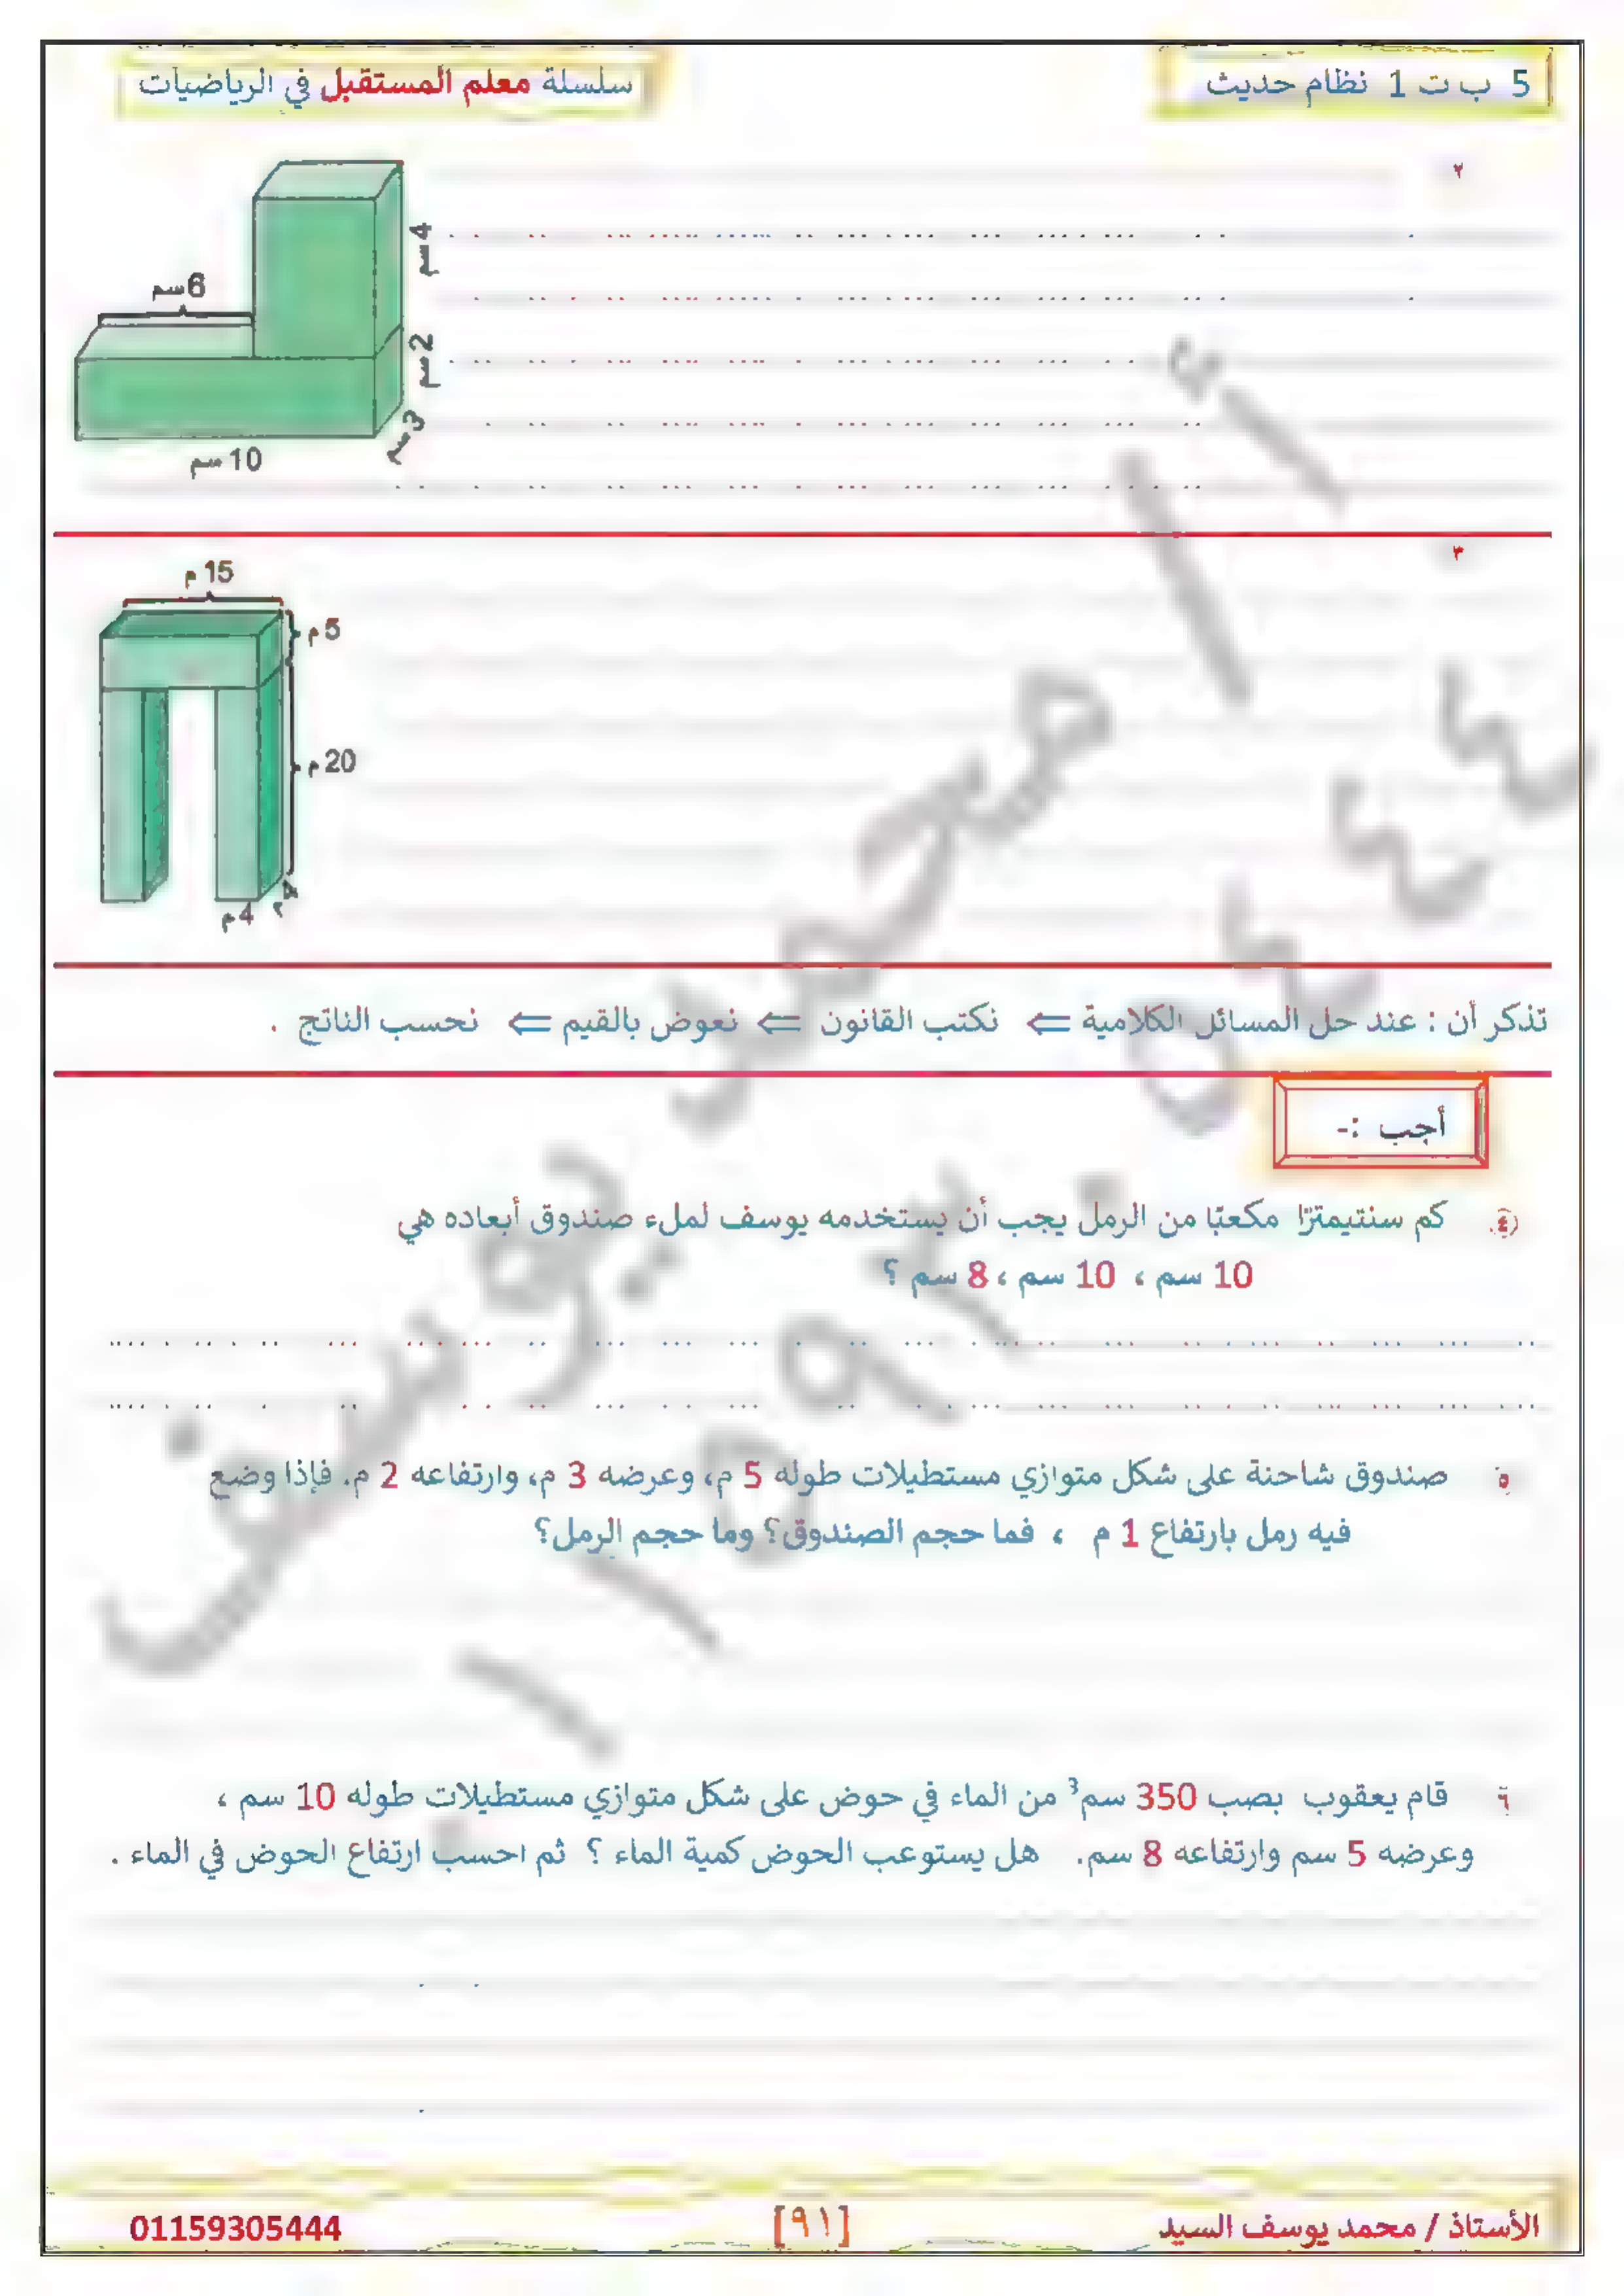 5 ب ت 1 نظام حديث
سلسلة معلم المستقبل في الرياضيات
٢
6 سم
4 سم
2 سم
3 سم
10 سم
٣
15 م
5 م
20 م
4 م
تذكر أن : عند حل المسائل الكلامية ⇐ نكتب القانون ⇐ نعوض بالقيم ⇐ نحسب الناتج .
أجب :-
٤ كم سنتيمترًا مكعبًا من الرمل يجب أن يستخدمه يوسف لملء صندوق أبعاده هي
10 سم ، 10 سم ، 8 سم ؟
٥ صندوق شاحنة على شكل متوازي مستطيلات طوله 5 م، وعرضه 3 م، وارتفاعه 2 م. فإذا وضع
فيه رمل بارتفاع 1 م ، فما حجم الصندوق؟ وما حجم الرمل؟
٦ قام يعقوب بصب 350 سم³ من الماء في حوض على شكل متوازي مستطيلات طوله 10 سم ،
وعرضه 5 سم وارتفاعه 8 سم. هل يستوعب الحوض كمية الماء ؟ ثم احسب ارتفاع الحوض في الماء .
الأستاذ / محمد يوسف السيد
[٩١]
01159305444